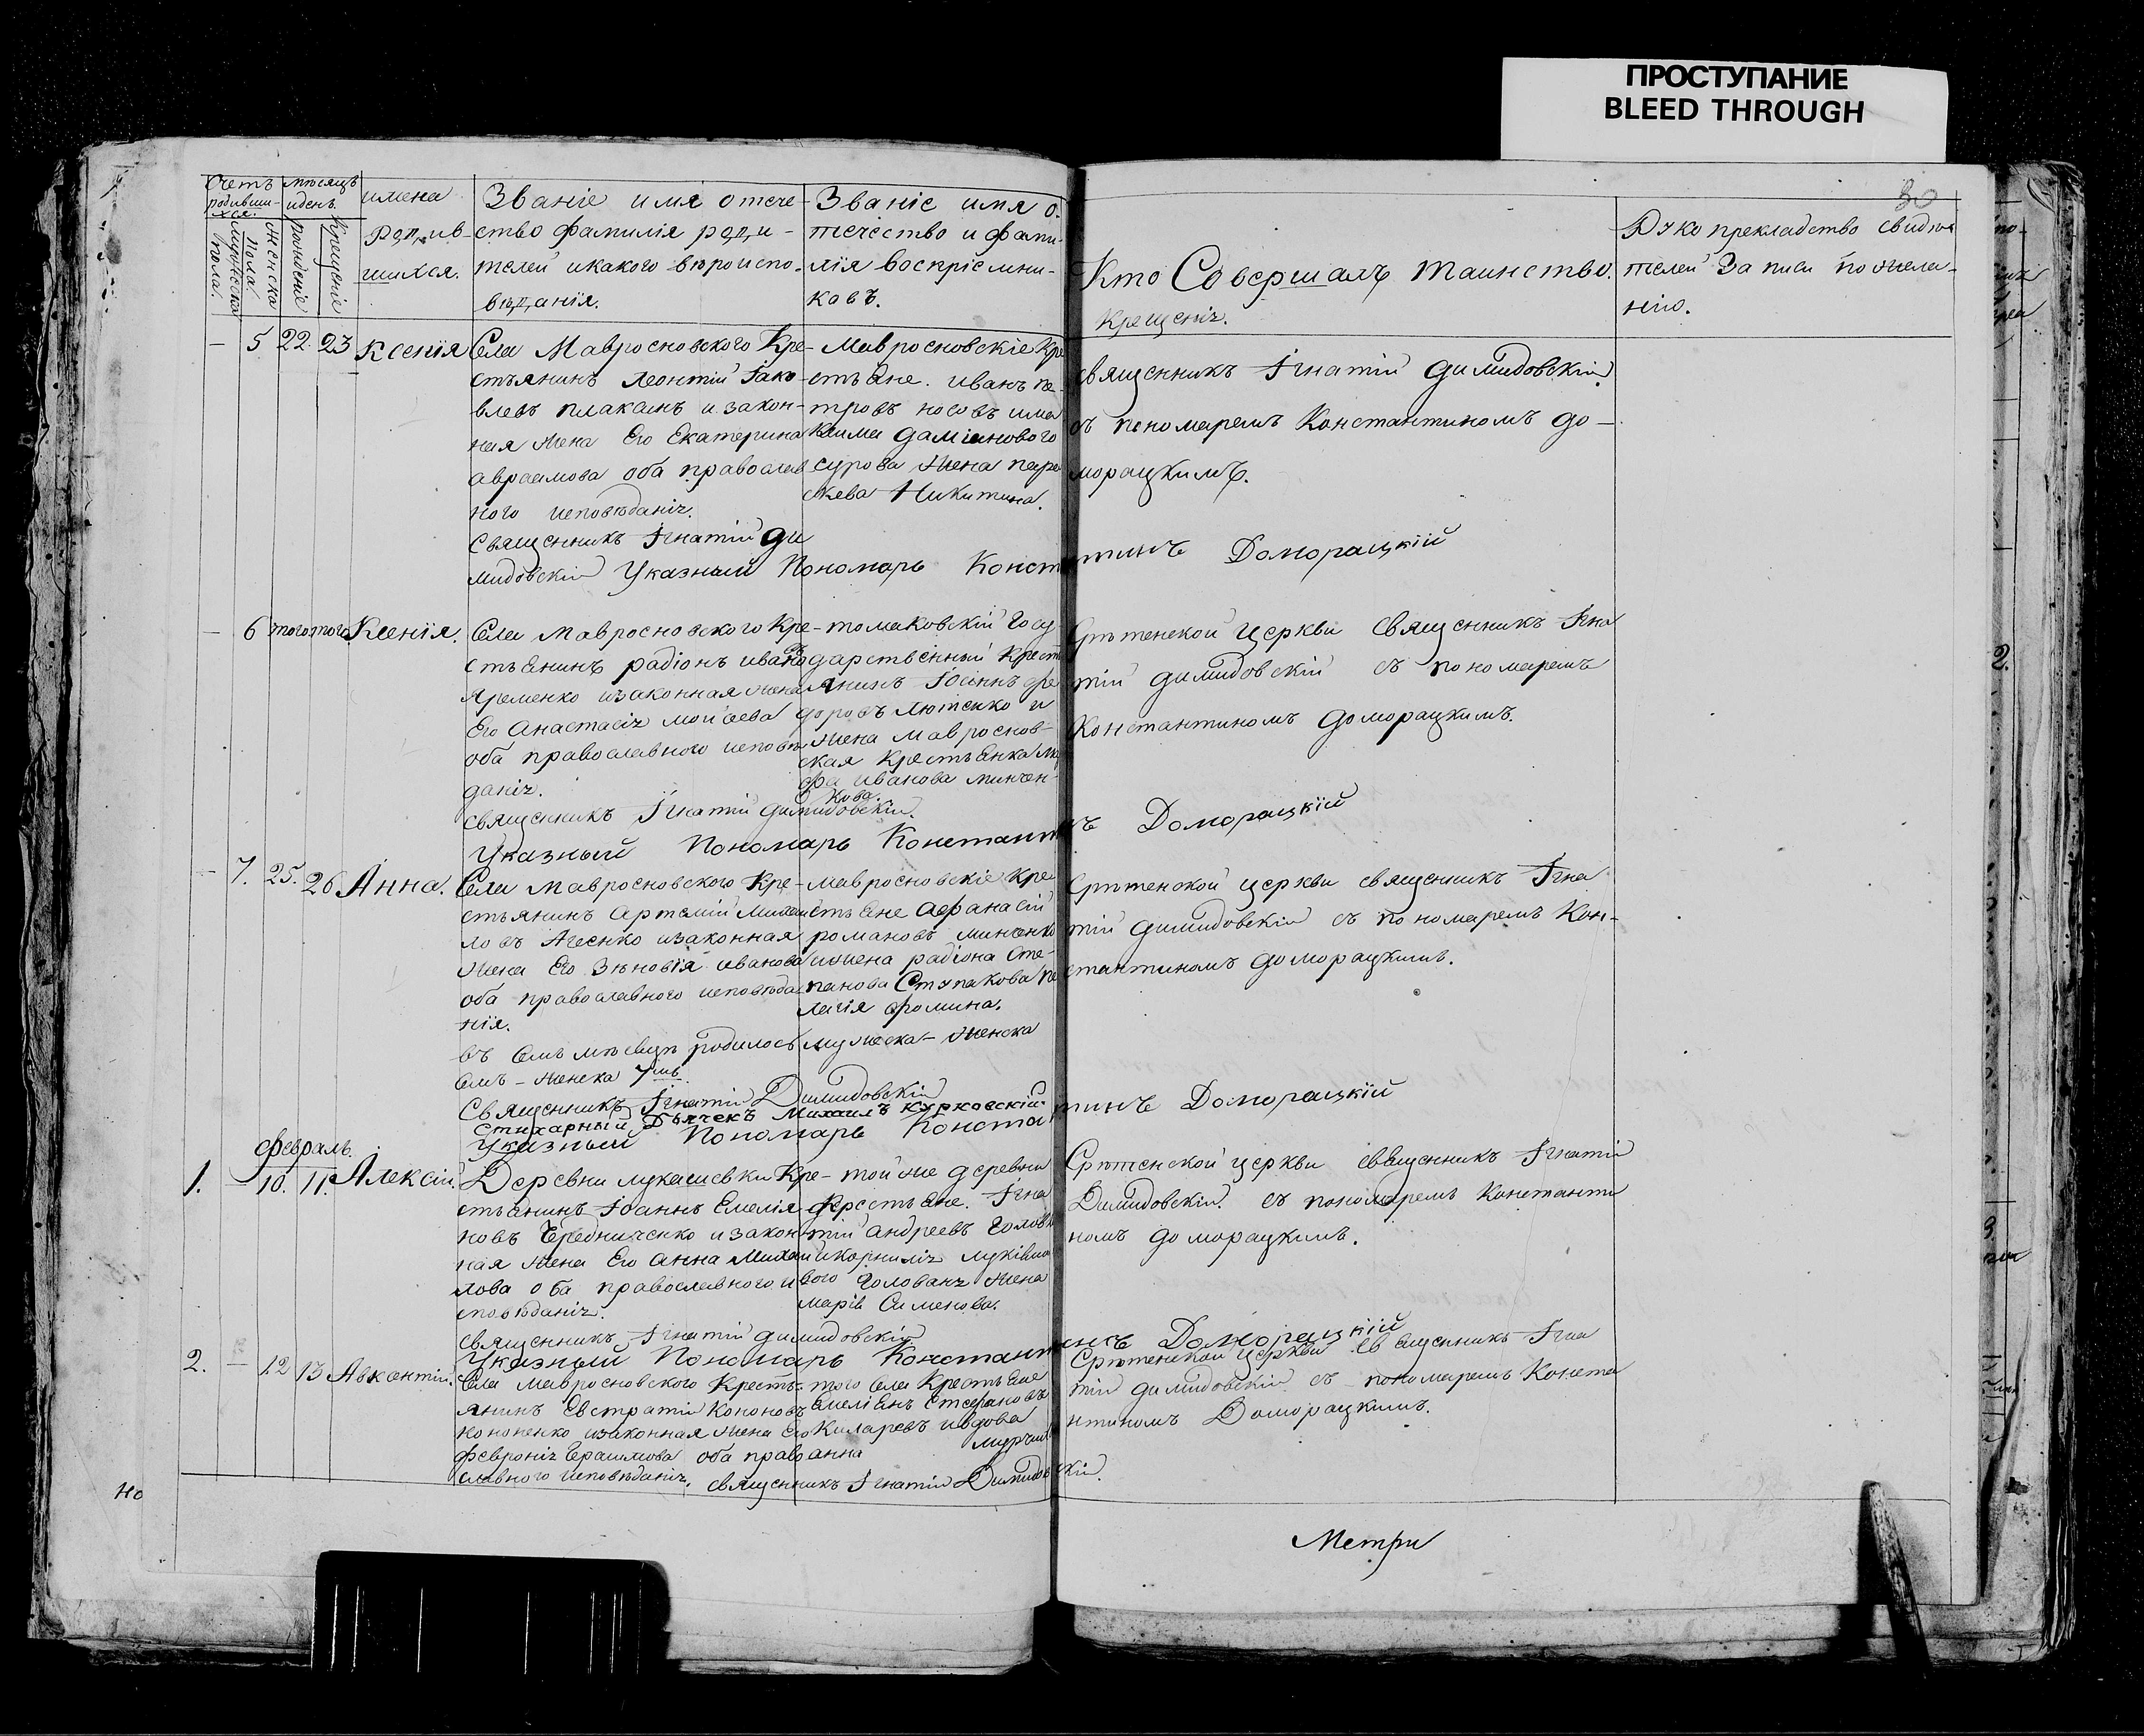 ПРОСТУПАНИЕ
BLEED THROUGH
30
Счетъ родивши-хся.
Мужеска пола.
Женска пола
месяцъ идень.
рожденіе
Крещеніе
имена
родив-
шихся.
Званіе имя отече-
ство фамилія роди-
телей икакого вѣроиспо-
вѣданія.
Званіе имя о-
течество и фами-
лія воспріемни-
ковъ.
Кто Совершалъ таинство
Крещенія.
Руко прекладство свидѣ
телей Записи пожела-
нію.
— 5 22. 23 Ксенія
Села Мавросновского Кре-
стьянинъ Леонтій Іако-
влевъ плаксинъ изакон-
ная жена Его Екатерина
авраамова оба православ
ного исповѣданія.
Мавросновскіе Кре
стьяне. иванъ пе-
тровъ носовъ
даміанового
сурова жена пара
скева Никитина.
священникъ Ігнатій димидовскій
съ пономаремъ Константиномъ до-
морацкимъ.
Священникъ Ігнатій Ди
мидовскій Указный Пономарь Конст тинъ Доморацкій
— 6 того того Ксенія.
Села мавросновского Кре-
стьянинъ радіонъ ивановъ
Яременко изаконная жена
Его анастасія моисеева
оба православного исповѣ
данія.
томаковскій Госу
дарственный Крест
янинъ Іоаннъ фе
доровъ Лютенко и
жена мавроснов-
ская Крестьянка ма
фа иванова минчен-
кова.
Срѣтенской церкви священникъ Ігна
тій димидовскій съ пономаремъ
Константиномъ доморацкимъ.
священникъ Ігнатій димидовскій.
Указный Пономарь Константи нъ Доморацкій
— 7. 25. 26 Анна.
Села мавросновского Кре-
стьянинъ артемій Михаи
ловъ Агеенко изаконная
жена Его Зѣновія иванова
оба православного исповѣда
нія.
мавросновскіе Кре
стьяне афанасій
романовъ минченко
ижена радіона Сте-
панова Ступакова пе
лагія фомина.
Срѣтенской церкви священникъ Ігна
тій димидовскій съ пономаремъ Кон-
стантиномъ доморацкимъ.
въ семъ мѣсяцѣ родилось мужеска — женска
семъ — женска 7мь.
Священникъ Ігнатій Димидовскій
Стихарный Дьячекъ Михаилъ Курковскій.
Указный Пономарь Конста тинъ Доморацкій
Февраль.
1. — 10. 11. Алексій.
Деревни лукашевки Кре-
стьянинъ Іоаннъ Емелія-
новъ Чередниченко изакон
ная жена Его анна Михаи
лова оба православного и
сповѣданія.
той же деревни
Крестьяне. Ігна
тій андреевъ Голова
икорнилія
вого Голована жена
марія Сименова.
Срѣтенской церкви священникъ Ігнатій
Димидовскій. съ пономаремъ Константи
номъ доморацкимъ.
священникъ Ігнатій димидовскій
Указный Пономарь Констант инъ Доморацкій
2. — 12 13 Авксентій.
Села мавросновского Кресть-
янинъ Евстратій Кононовъ
Кононенко изаконная жена Его
февронія Ерасимова оба право
славного исповѣданія.
того села Крестьяне
Емеліянъ Стефановъ
Киларевъ ивдова
анна
Срѣтенской церкви священникъ Ігна
тій димидовскій съ пономаремъ Конста
нтиномъ Доморацкимъ.
священникъ Ігнатій Димидовскій.
но
Метри